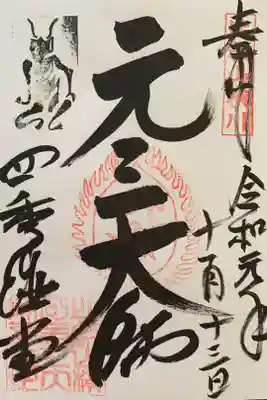 奉拝
令和元年
十月十三日
元三大師
四季講堂